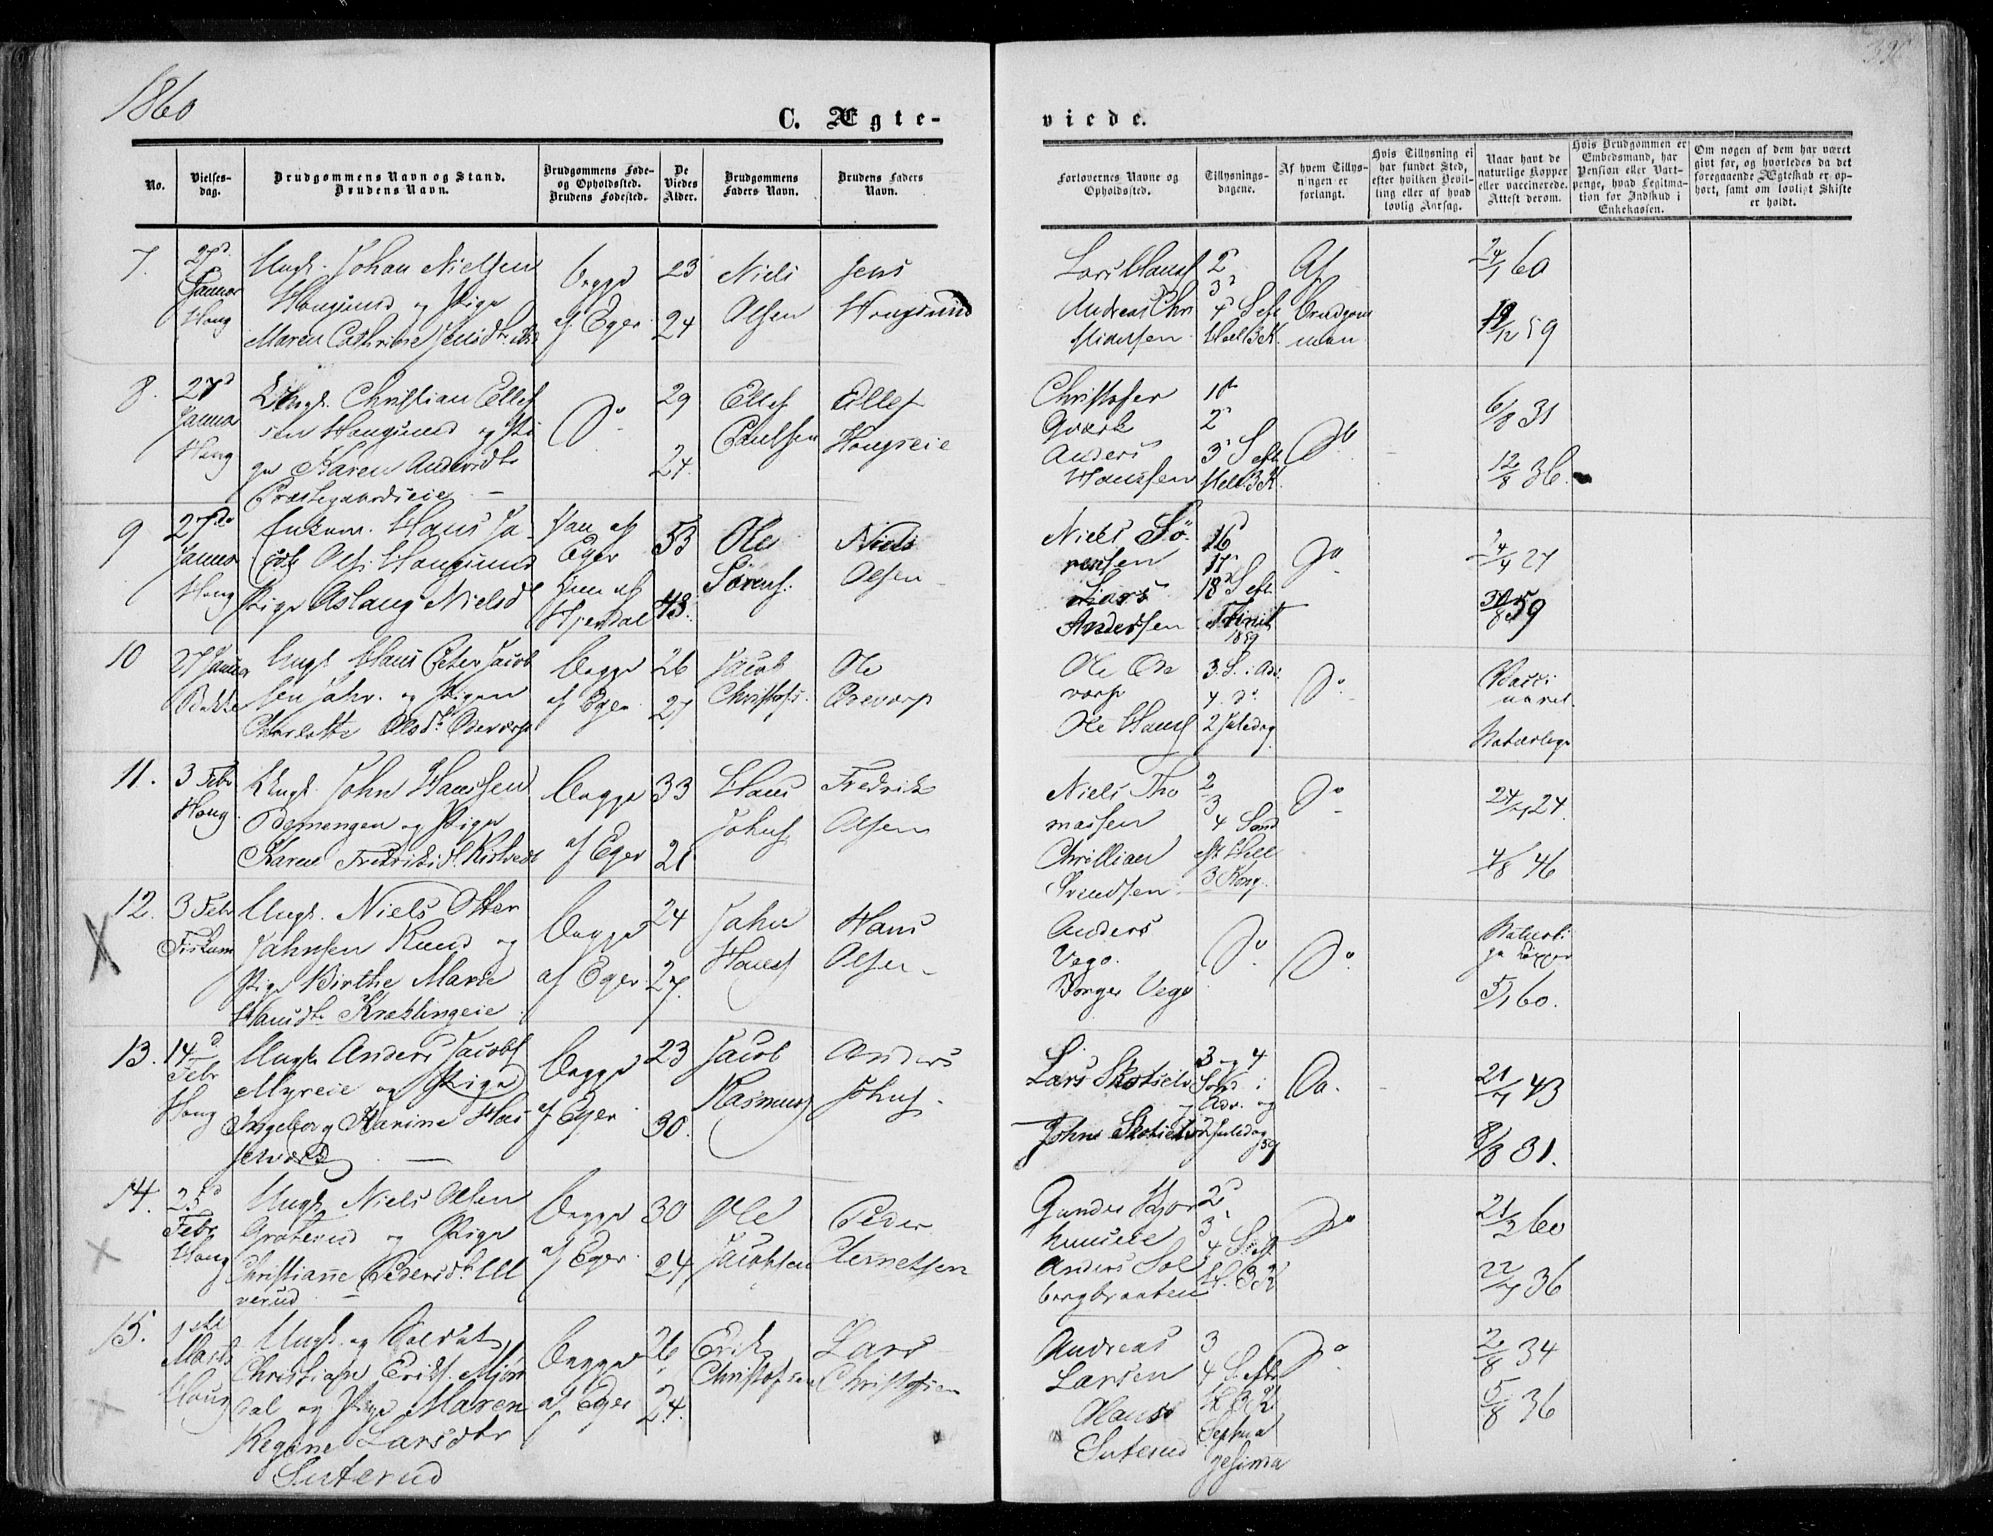 1860
C. Ægte-
viede.
No.
Vielses-
dag.
Brudgommens Navn og Stand.
Brudens Navn.
Brudgommens Føde-
og Opholdssted.
Brudens Fødested.
De
Viedes
Alder.
Brudgommens
Faders Navn.
Brudens Faders
Navn.
Forlovernes Navne og
Opholdssted.
Tillysnings-
dagene.
Af hvem Tillys-
ningen er
forlangt.
Hvis Tillysning ei
har fundet Sted,
efter hvilken Bevil-
ling eller af hvad
lovlig Aarsag.
Naar havt de
naturlige Kopper
eller vaccinerede.
Attest derom.
Hvis Brudgommen er
Embedsmand, har
Pension eller Vart-
penge, hvad Legitima-
tion for Indskud i
Enkekassen.
Om nogen af dem har været
gift før, og hvorledes da det
foregaaende Ægteskab er op-
hørt, samt om lovligt Skifte
er holdt.
7.
27d
Januar
Houg
Ungk. Johan Nielsen
Hougsund og Pige
Maren Cathrine Jensdtr
Begge
af Eger
23
24
Niels
Olsen
Jens
Hougsund
Lars Hansf
Andreas Chri
stiansen
2d
3d
4d S eft
Hell 3 K.
Af
Brudgom
men
24/1 60
19/12 59
8.
27d
Januar
Houg
Ungk. Christian Ellef
sen Hougsund og Pi
ge Karen Andersdtr
Præstegaardseie
Do
29
24
Ellef
Paulsen
Ellef
Hougseie
Christofer
Qværk
Anders
Hanssen
1st
2d
3d S eft
Hell 3 K.
Do
6/8 31
12/8 36.
9
27de
Januar
Houg
Enkem. Hans Ja
cob Ols. Hougsund
Pige Aslaug Nielsd
Han af
Eger
Hun af
Hjerdal
53
43.
Ole
Sørens.
Niels
Olsen
Niels Sö
rensen
Lars
Anderssen
16
17
18d S eft
Trinit
1859
Do
24/4 27
30/8 59
10
27 Januar
Bakke
Ungk Hans Peter Jacob
sen Jahr. og Pigen
Charlotte Olsdtr Odevorp
Begge
af Eger
26
27
Jacob
Christofs.
Ole
Odevorp
Ole Ode
vorp
Ole Hansf
3. S. i Adv
4. do
2 Juledag
Do
Vacci
neret.
Naturlige
11.
3 Febr
Houg
Ungk. John Hanssen
og Pige
Karen Fredriksdtr
Begge
af Eger
33
21
Hans
Johnsf
Fredrik
Olsen
Niels Tho
massen
Christian
Svendsen
2
3
4 Sønd
eft Hell
3 Kong.
Do
24/7 24.
4/8 46
12.
3 Febr
Fiskum
Ungk. Niels Otter
Johnsen Rund og
Pige Birthe Marie
Hansdtr Kræklingeie
Begge
af Eger
24
27.
John
Hansf
Hans
Olsen
Anders
Vego.
Torger Vego
Do
Do
Naturli
ge Kopper
5/1 60.
13.
14d
Febr
Houg
Ungk Anders Jacobsf
Myreie og Pige
Ingeborg Karine Has
selværd
Begge
af Eger
23
30.
Jacob
Rasmusf
Anders
Johnsf
Lars Skotselv
Johns Skotselv
3 og 4
Sønd i
Adv. og
2 Juledag
59
Do.
21/7 43
8/8 31.
14.
23d
Febr
Houg
Ungk. Niels Olsen
Groterud og Pige
Christiane Pedersdtr Ul
verud
Begge
af Eger
30
24
Ole
Jacobsen
Peder
Clemetsen
Gunder Kjør
kuuseie
Anders Sol
bergbraaten
2d
3
4 S eft
H. 3 K
Do
21/2 60
22/7 36
15.
1ste
Marts
Houg
Ungk. og Soldat
Christian Eriks. Mjøn
dal og Pige Maren
Regine Larsdtr
Suterud
Begge
af Eger
26
24.
Erik
Christofsen
Lars
Christofsen
Andreas
Larsen
Hans
Suterud
3
4 S. eft
H. 3 K
Septua
gesima
Do
2/8 34
5/8 36